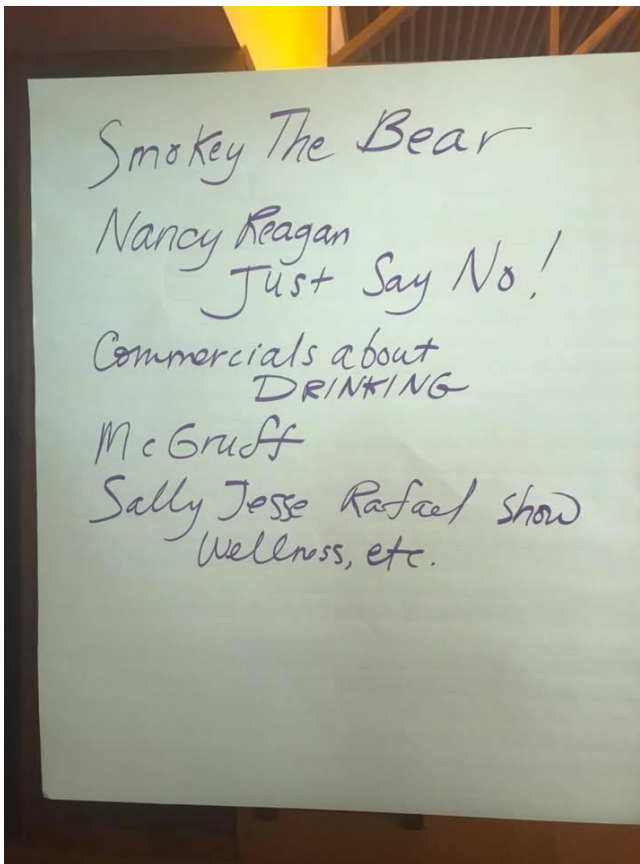 Smokey The Bear
Nancy Reagan
Just Say No!
Commercials about
DRINKING
McGruff
Sally Jesse Rafael show
Wellness, etc.